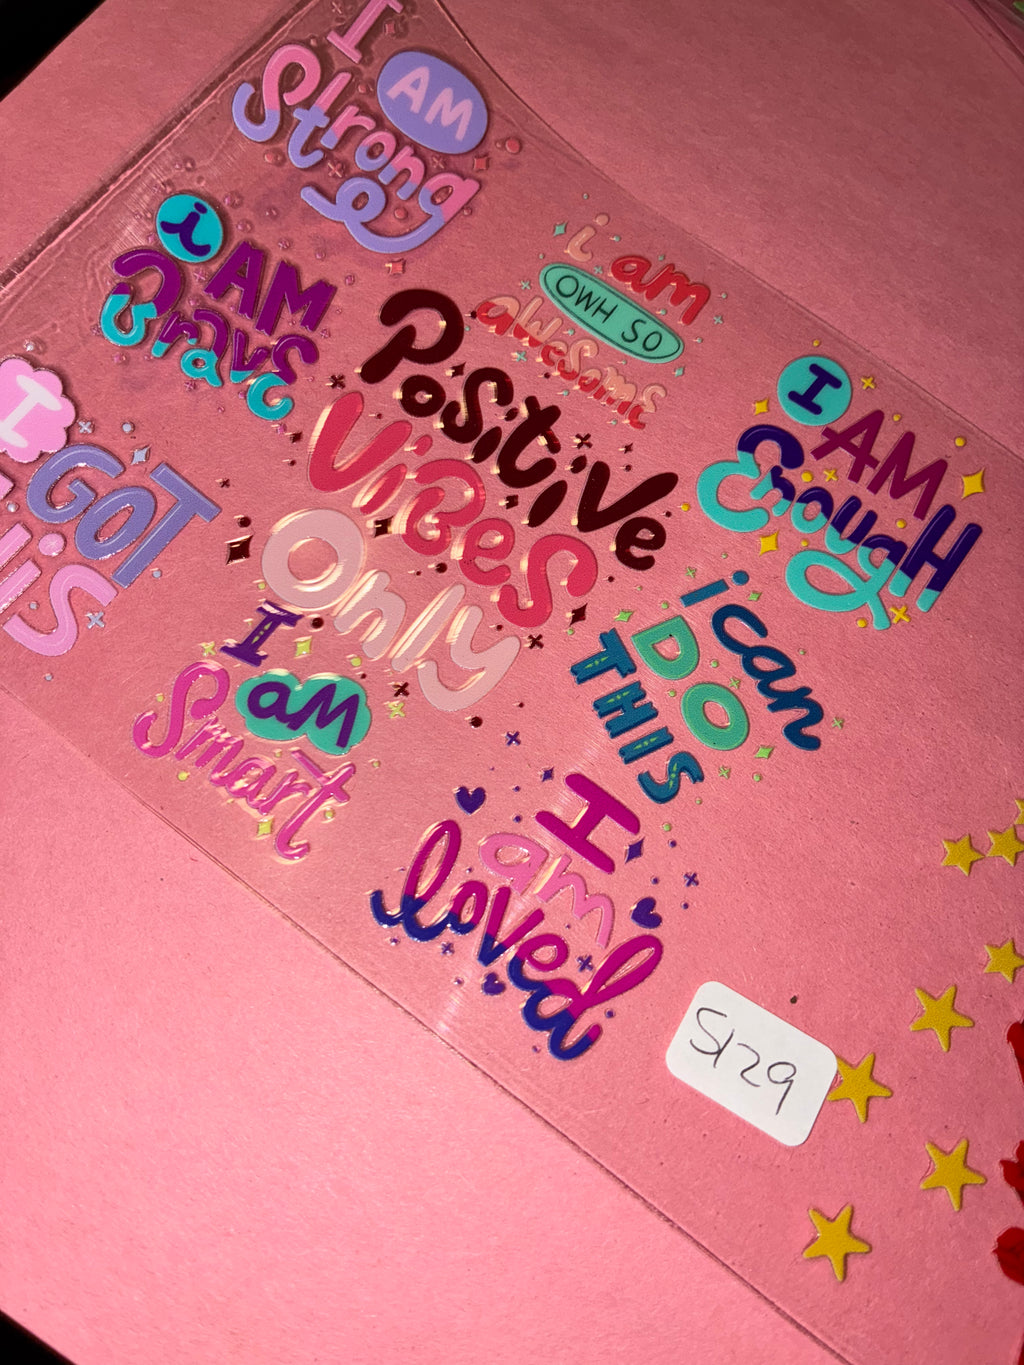 I AM
Strong
i AM
Brave
i am
OWH SO
awesome
POSiTiVe
ViBeS
Only
I AM
EnougH
I
GOT
HiS
i can
DO
THIS
I
aM
Smart
I
am
loved
S129